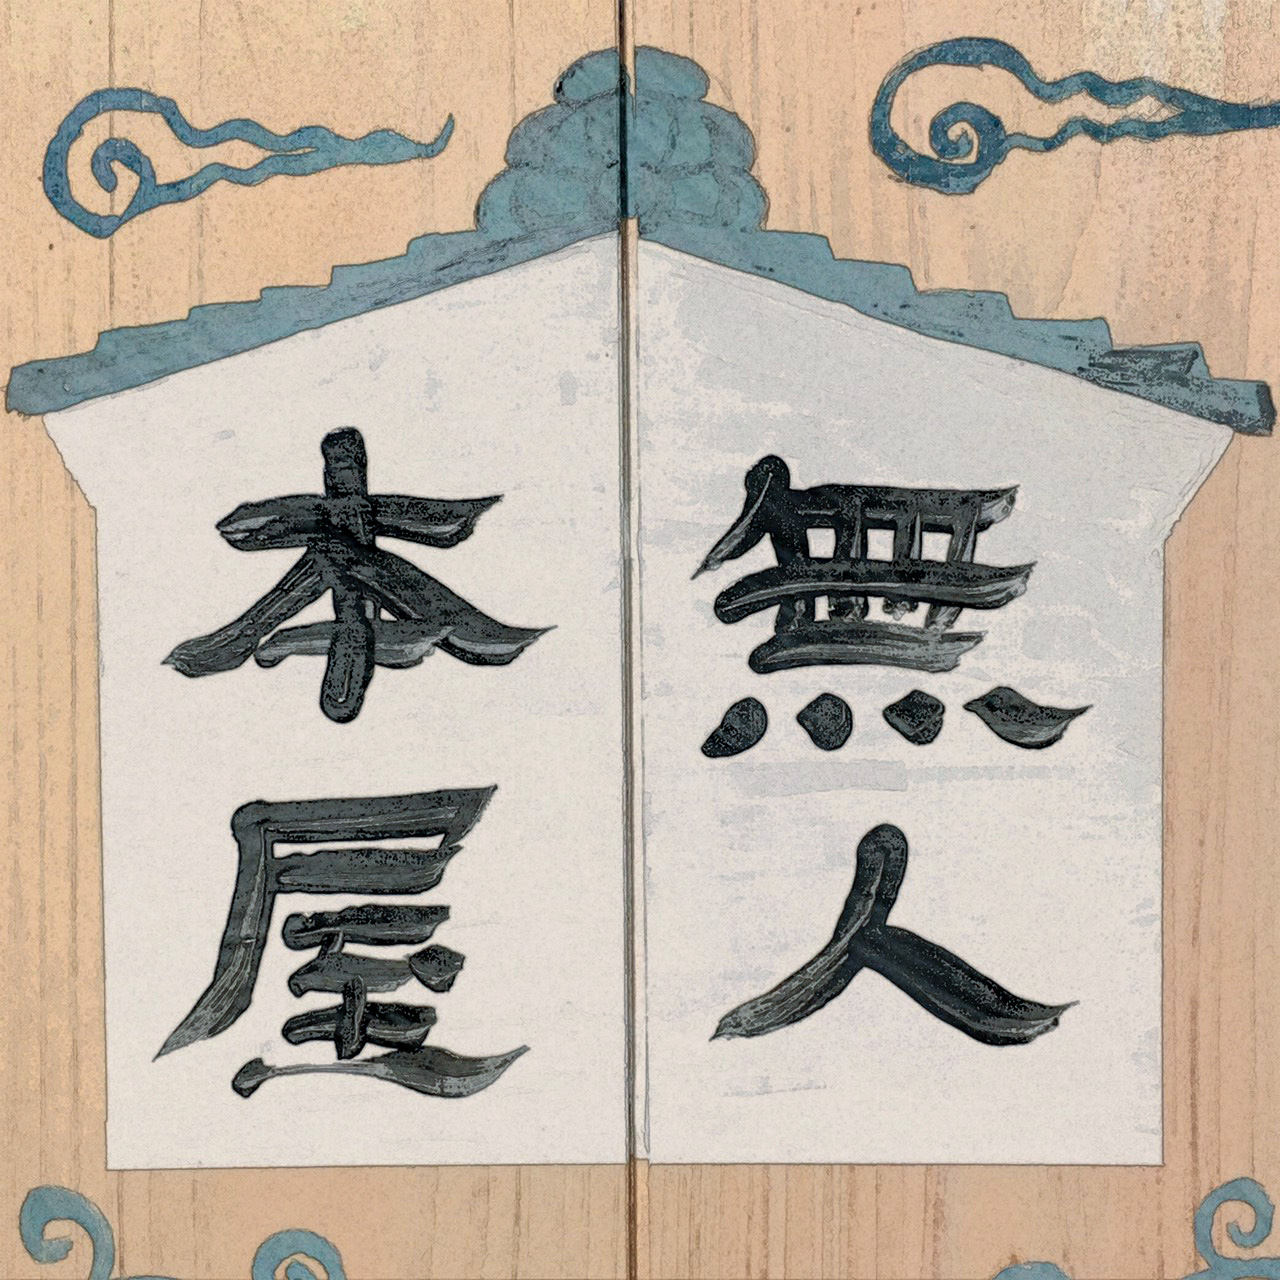 無人
本屋